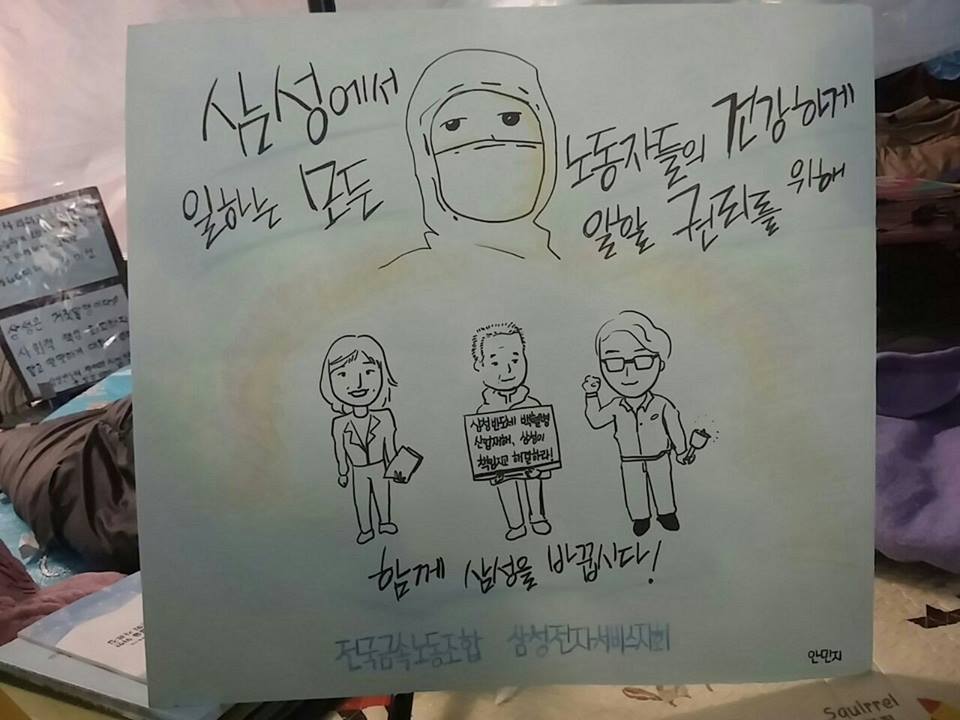 삼성에서
일하는 모든
노동자들의 건강하게
일할 권리를 위해
삼성반도체 백혈병
산업재해, 삼성이
책임지고 해결하라!
함께 삼성을 바꿉시다!
전국금속노동조합 삼성전자서비스지회
안민지
삼성은
사회적
Squirrel